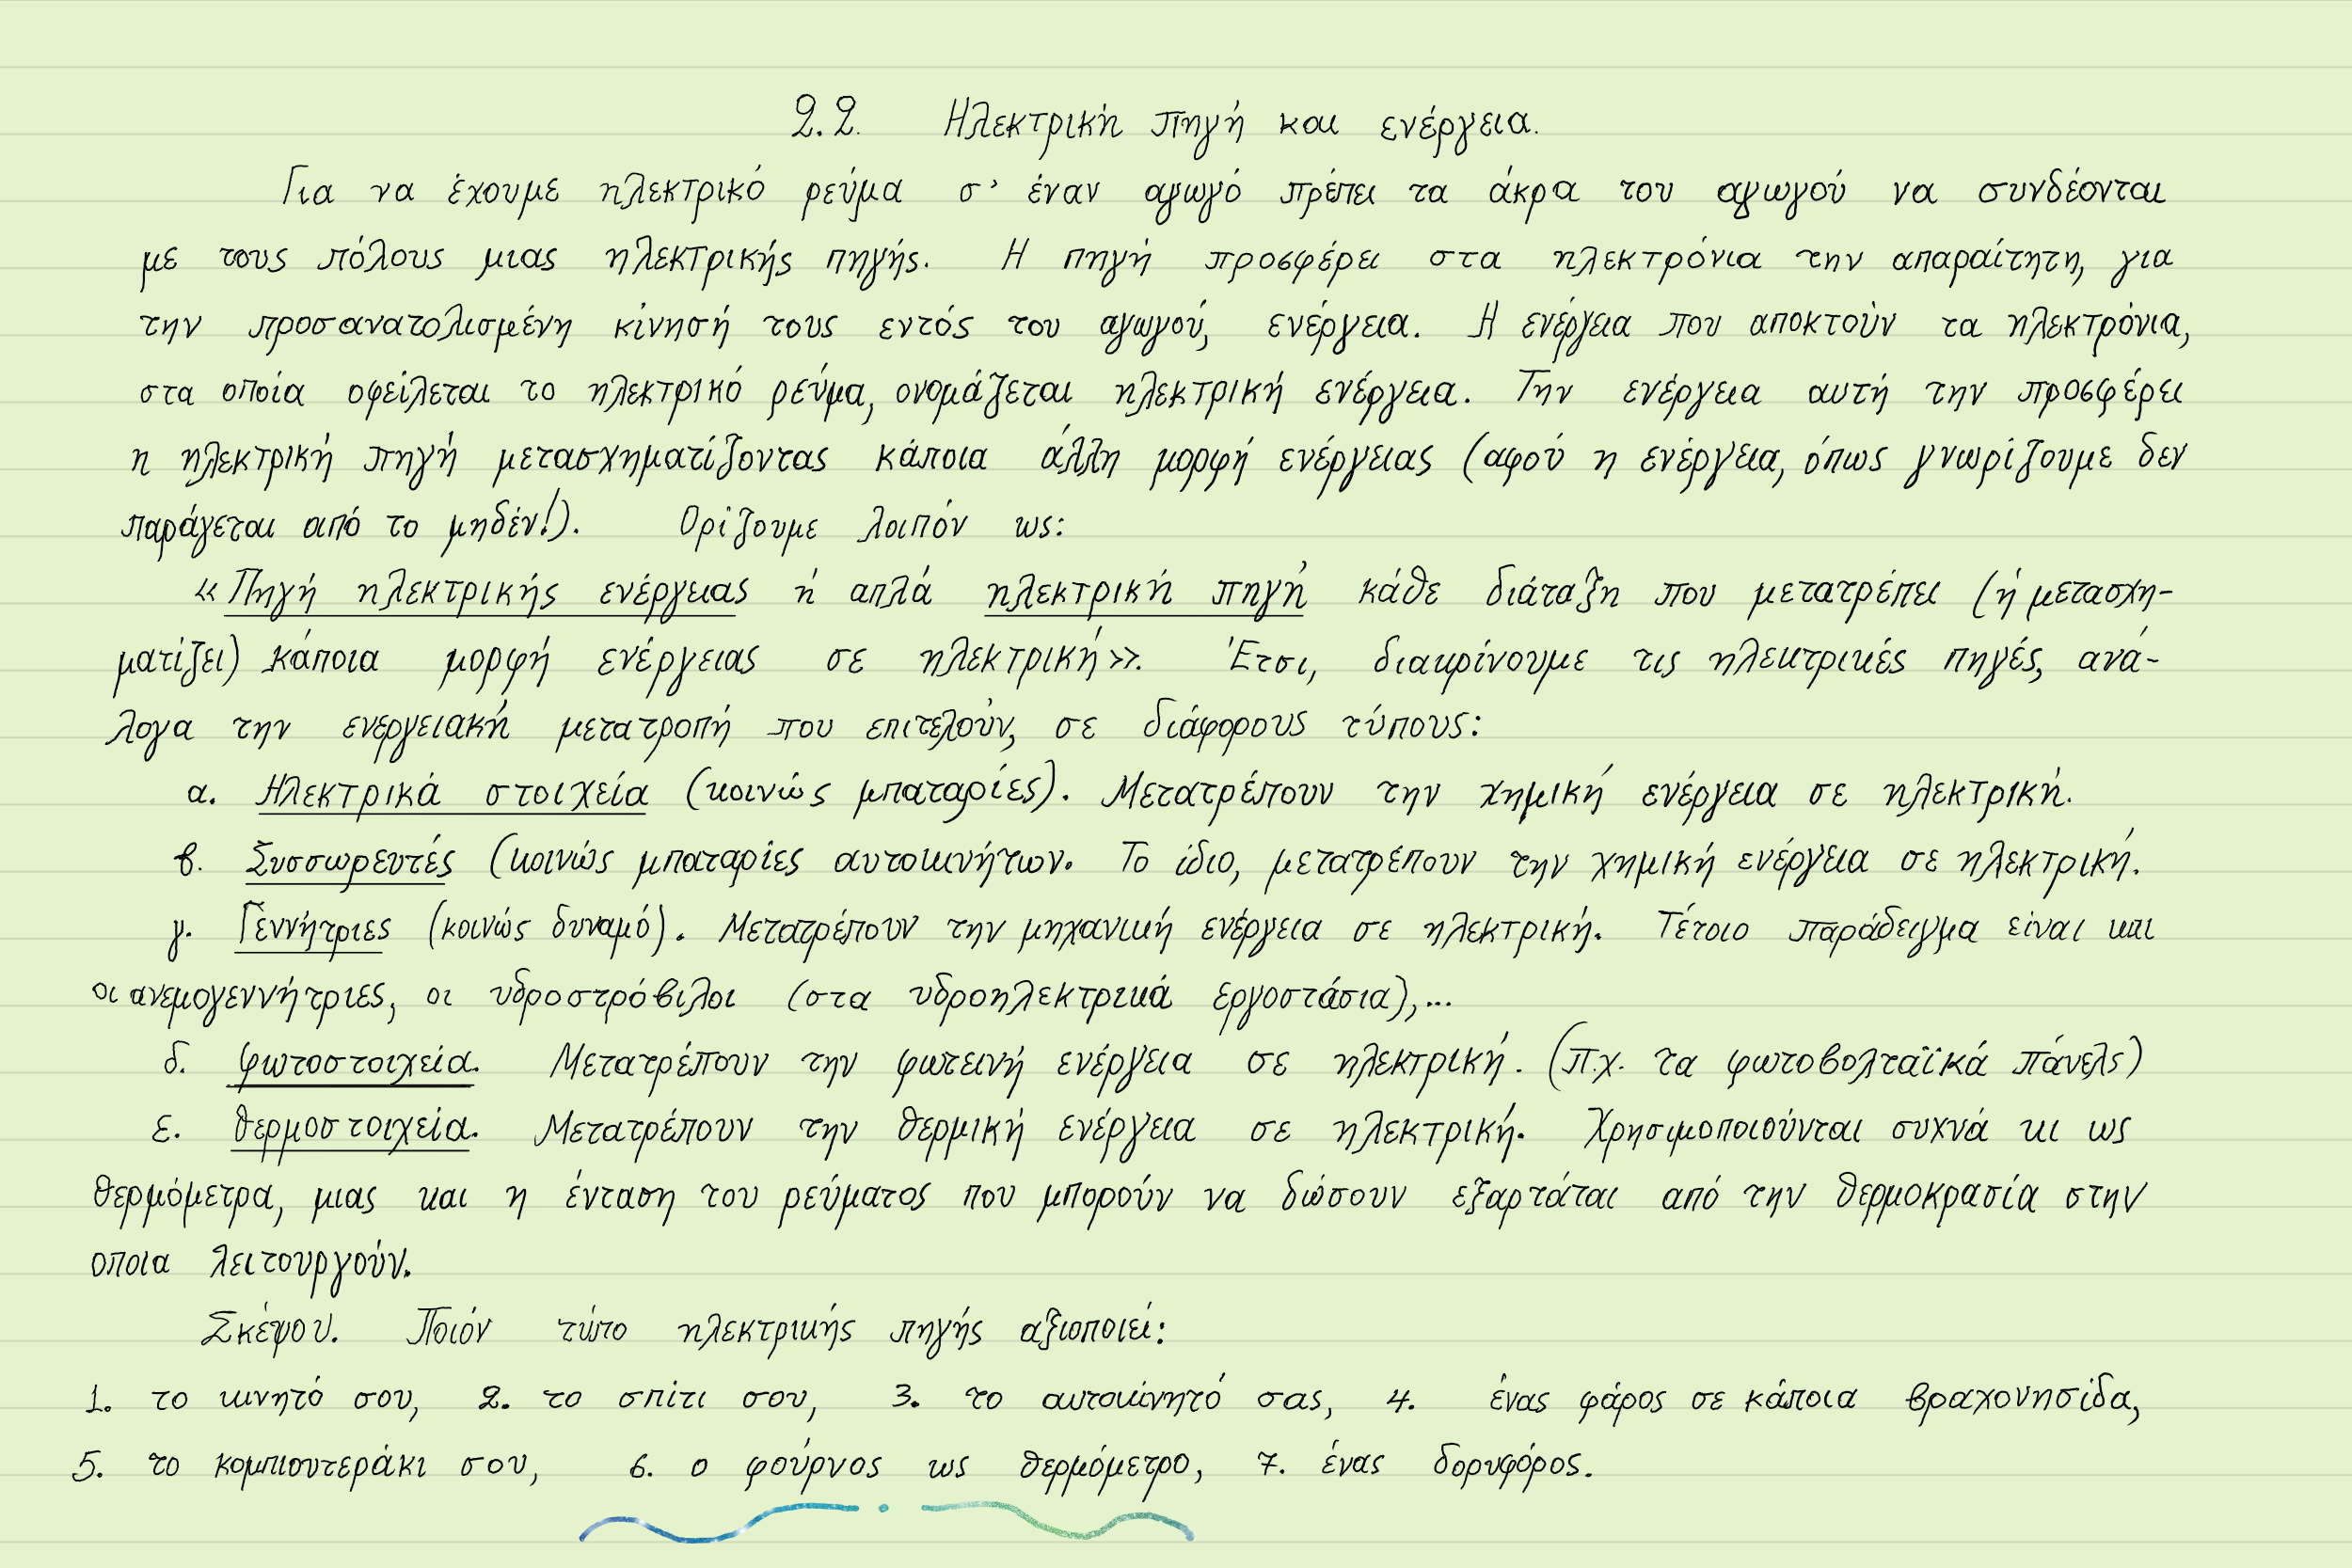 2.2. Ηλεκτρική πηγή και ενέργεια.
Για να έχουμε ηλεκτρικό ρεύμα σ' έναν αγωγό πρέπει τα άκρα του αγωγού να συνδέονται
με τους πόλους μιας ηλεκτρικής πηγής. Η πηγή προσφέρει στα ηλεκτρόνια την απαραίτητη, για
την προσανατολισμένη κίνησή τους εντός του αγωγού, ενέργεια. Η ενέργεια που αποκτούν τα ηλεκτρόνια,
στα οποία οφείλεται το ηλεκτρικό ρεύμα, ονομάζεται ηλεκτρική ενέργεια. Την ενέργεια αυτή την προσφέρει
η ηλεκτρική πηγή μετασχηματίζοντας κάποια άλλη μορφή ενέργειας (αφού η ενέργεια, όπως γνωρίζουμε δεν
παράγεται από το μηδέν!). Ορίζουμε λοιπόν ως:
«Πηγή ηλεκτρικής ενέργειας ή απλά ηλεκτρική πηγή κάθε διάταξη που μετατρέπει (ή μετασχη-
ματίζει) κάποια μορφή ενέργειας σε ηλεκτρική». Έτσι, διακρίνουμε τις ηλεκτρικές πηγές, ανά-
λογα την ενεργειακή μετατροπή που επιτελούν, σε διάφορους τύπους:
α. Ηλεκτρικά στοιχεία (κοινώς μπαταρίες). Μετατρέπουν την χημική ενέργεια σε ηλεκτρική.
β. Συσσωρευτές (κοινώς μπαταρίες αυτοκινήτων. Το ίδιο, μετατρέπουν την χημική ενέργεια σε ηλεκτρική.
γ. Γεννήτριες (κοινώς δυναμό). Μετατρέπουν την μηχανική ενέργεια σε ηλεκτρική. Τέτοιο παράδειγμα είναι και
οι ανεμογεννήτριες, οι υδροστρόβιλοι (στα υδροηλεκτρικά εργοστάσια),...
δ. φωτοστοιχεία. Μετατρέπουν την φωτεινή ενέργεια σε ηλεκτρική. (π.χ. τα φωτοβολταϊκά πάνελς)
ε. θερμοστοιχεία. Μετατρέπουν την θερμική ενέργεια σε ηλεκτρική. Χρησιμοποιούνται συχνά κι ως
θερμόμετρα, μιας και η ένταση του ρεύματος που μπορούν να δώσουν εξαρτάται από την θερμοκρασία στην
οποια λειτουργούν.
Σκέψου. Ποιόν τύπο ηλεκτρικής πηγής αξιοποιεί:
1. το κινητό σου, 2. το σπίτι σου, 3. το αυτοκίνητό σας, 4. ένας φάρος σε κάποια βραχονησίδα,
5. το κομπιουτεράκι σου, 6. ο φούρνος ως θερμόμετρο, 7. ένας δορυφόρος.